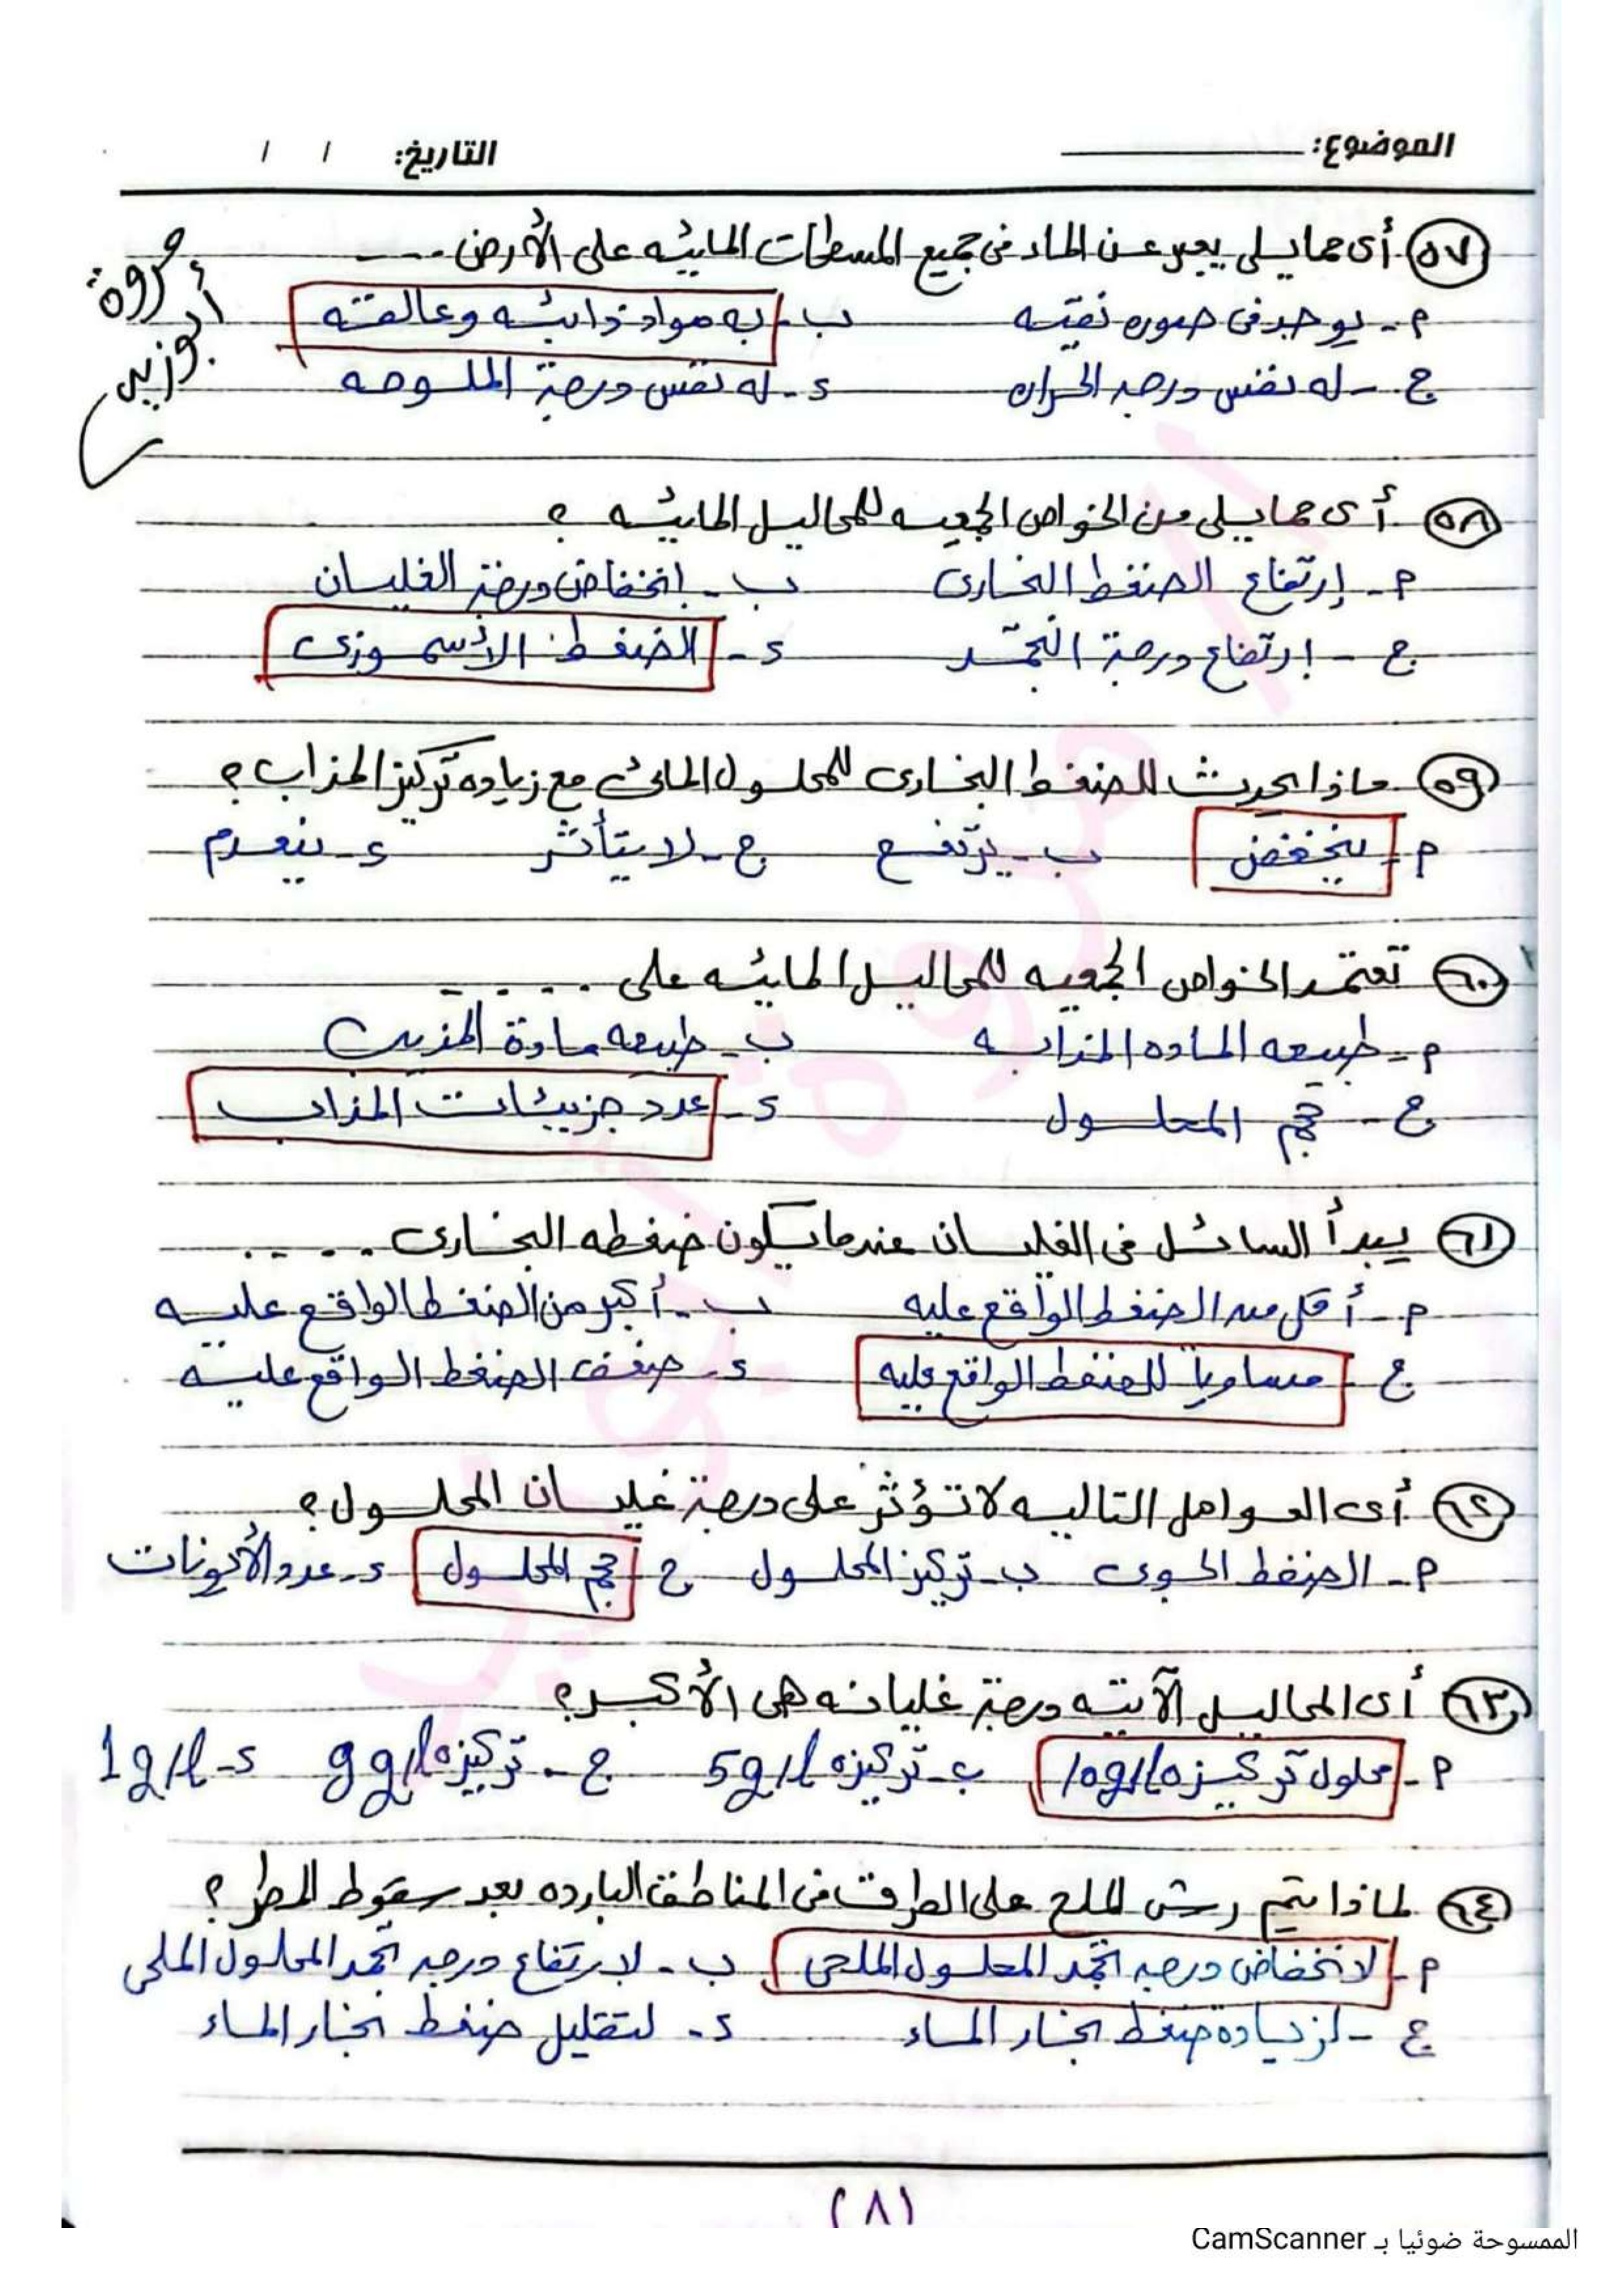 الموضوع: التاريخ: / /
مروة أبوزيد
٥٧ أى مما يلى يعبر عن الماء فى جميع المسطحات المائيه على الأرض ....
م - يوجد فى صوره نقيه ب - به مواد ذائبه وعالقه
ج - له نفس درجه الحراره د - له نفس درجة الملوحه
٥٨ أى مما يلى من الخواص الجمعيه للمحاليل المائيه ؟
م - إرتفاع الضغط البخارى ب - انخفاض درجة الغليان
ج - ارتفاع درجة التجمد د - الضغط الأسموزى
٥٩ ماذا يحدث للضغط البخارى للمحلول المائى مع زياده تركيز المذاب ؟
م - ينخفض ب - يرتفع ج - لا يتأثر د - ينعدم
٦٠ تعتمد الخواص الجمعيه للمحاليل المائيه على .....
م - طبيعه الماده المذابه ب - طبيعه مادة المذيب
ج - حجم المحلول د - عدد جزيئات المذاب
٦١ يبدأ السائل فى الغليان عندما يكون ضغطه البخارى .....
م - أقل من الضغط الواقع عليه ب - أكبر من الضغط الواقع عليه
ج - مساوياً للضغط الواقع عليه د - ضعف الضغط الواقع عليه
٦٢ أى العوامل التاليه لا تؤثر على درجة غليان المحلول ؟
م - الضغط الجوى ب - تركيز المحلول ج - حجم المحلول د - عدد الأيونات
٦٣ أى المحاليل الآتيه درجة غليانه هى الأكبر ؟
م - محلول تركيزه 10g/l ب - تركيزه 5g/l ج - تركيزه 9g/l د - 1g/l
٦٤ لماذا يتم رش الملح على الطرق فى المناطق البارده بعد سقوط المطر ؟
م - لانخفاض درجه تجمد المحلول الملحى ب - لارتفاع درجه تجمد المحلول الملحى
ج - لزياده ضغط بخار الماء د - لتقليل ضغط بخار الماء
(٨)
الممسوحة ضوئيا بـ CamScanner